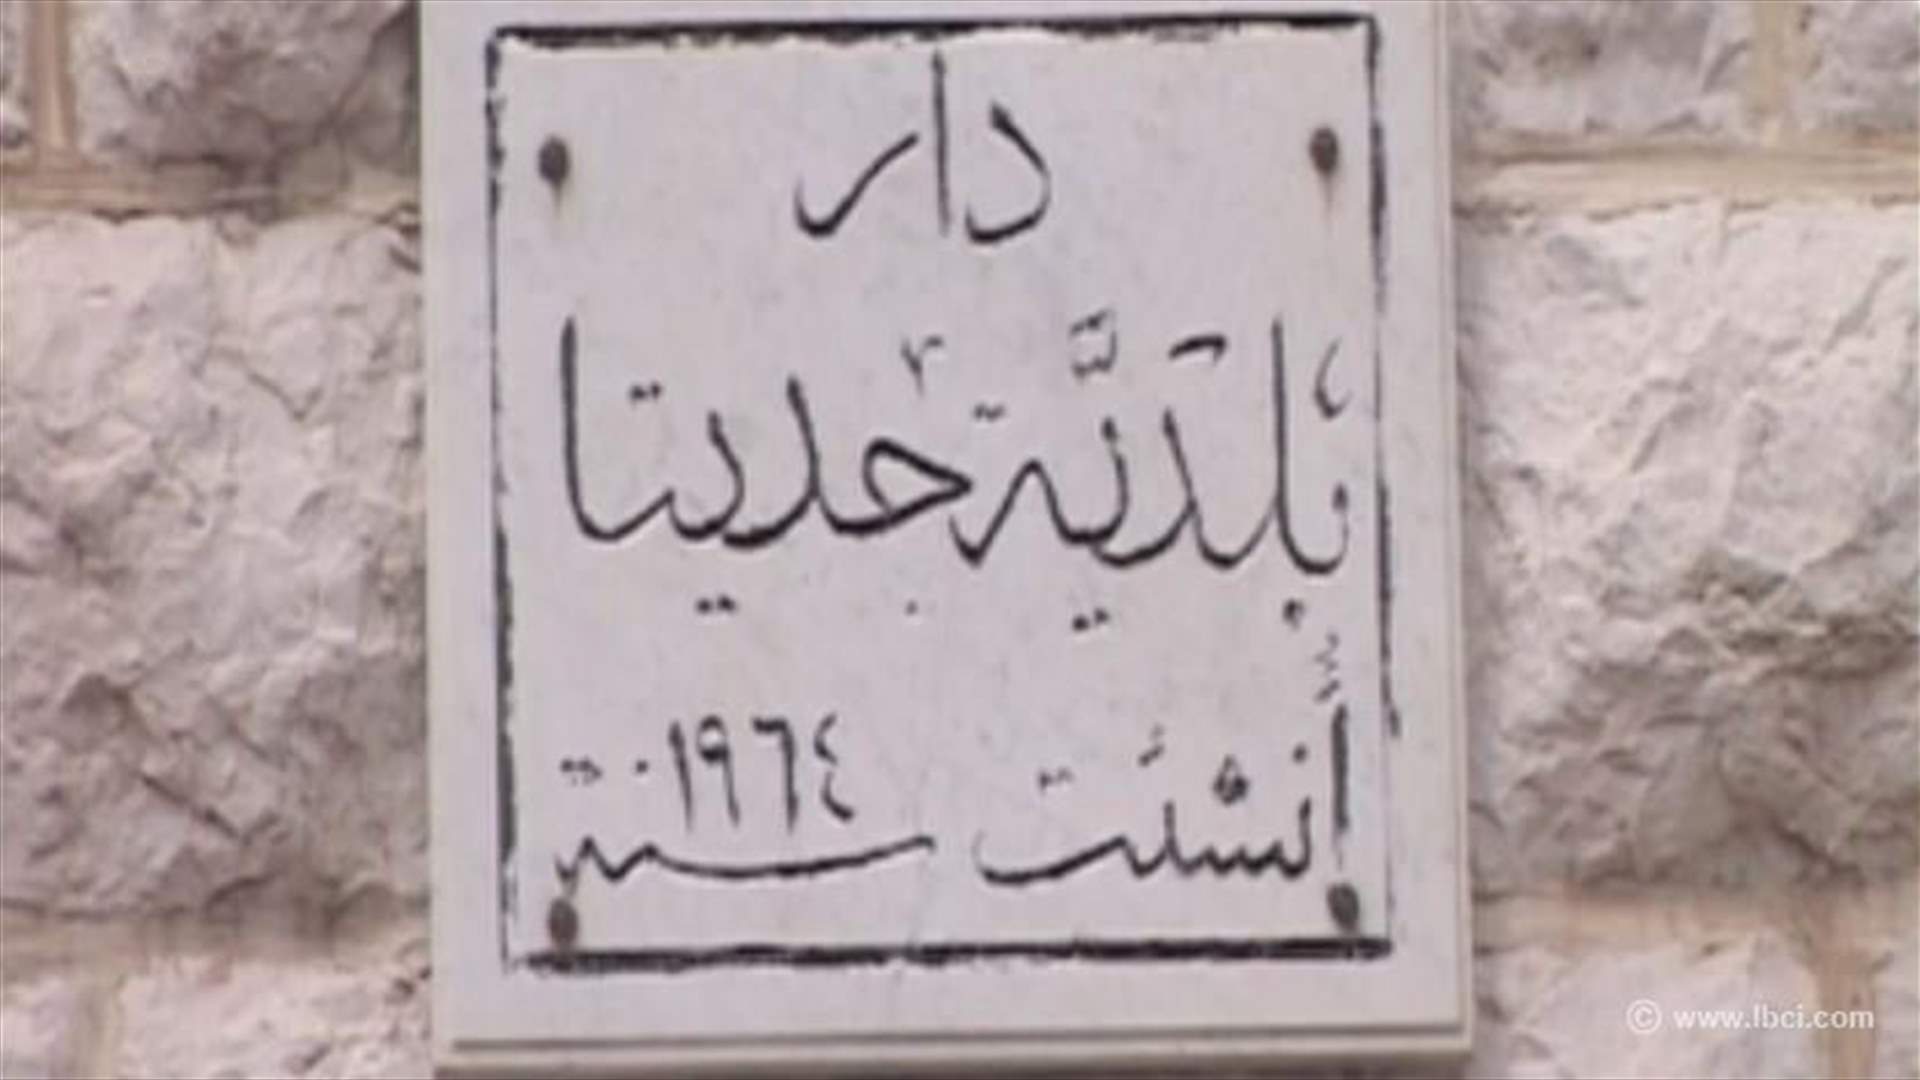 دار
بلديّة جديتا
أنشئت سنة ١٩٦٤
© www.lbci.com